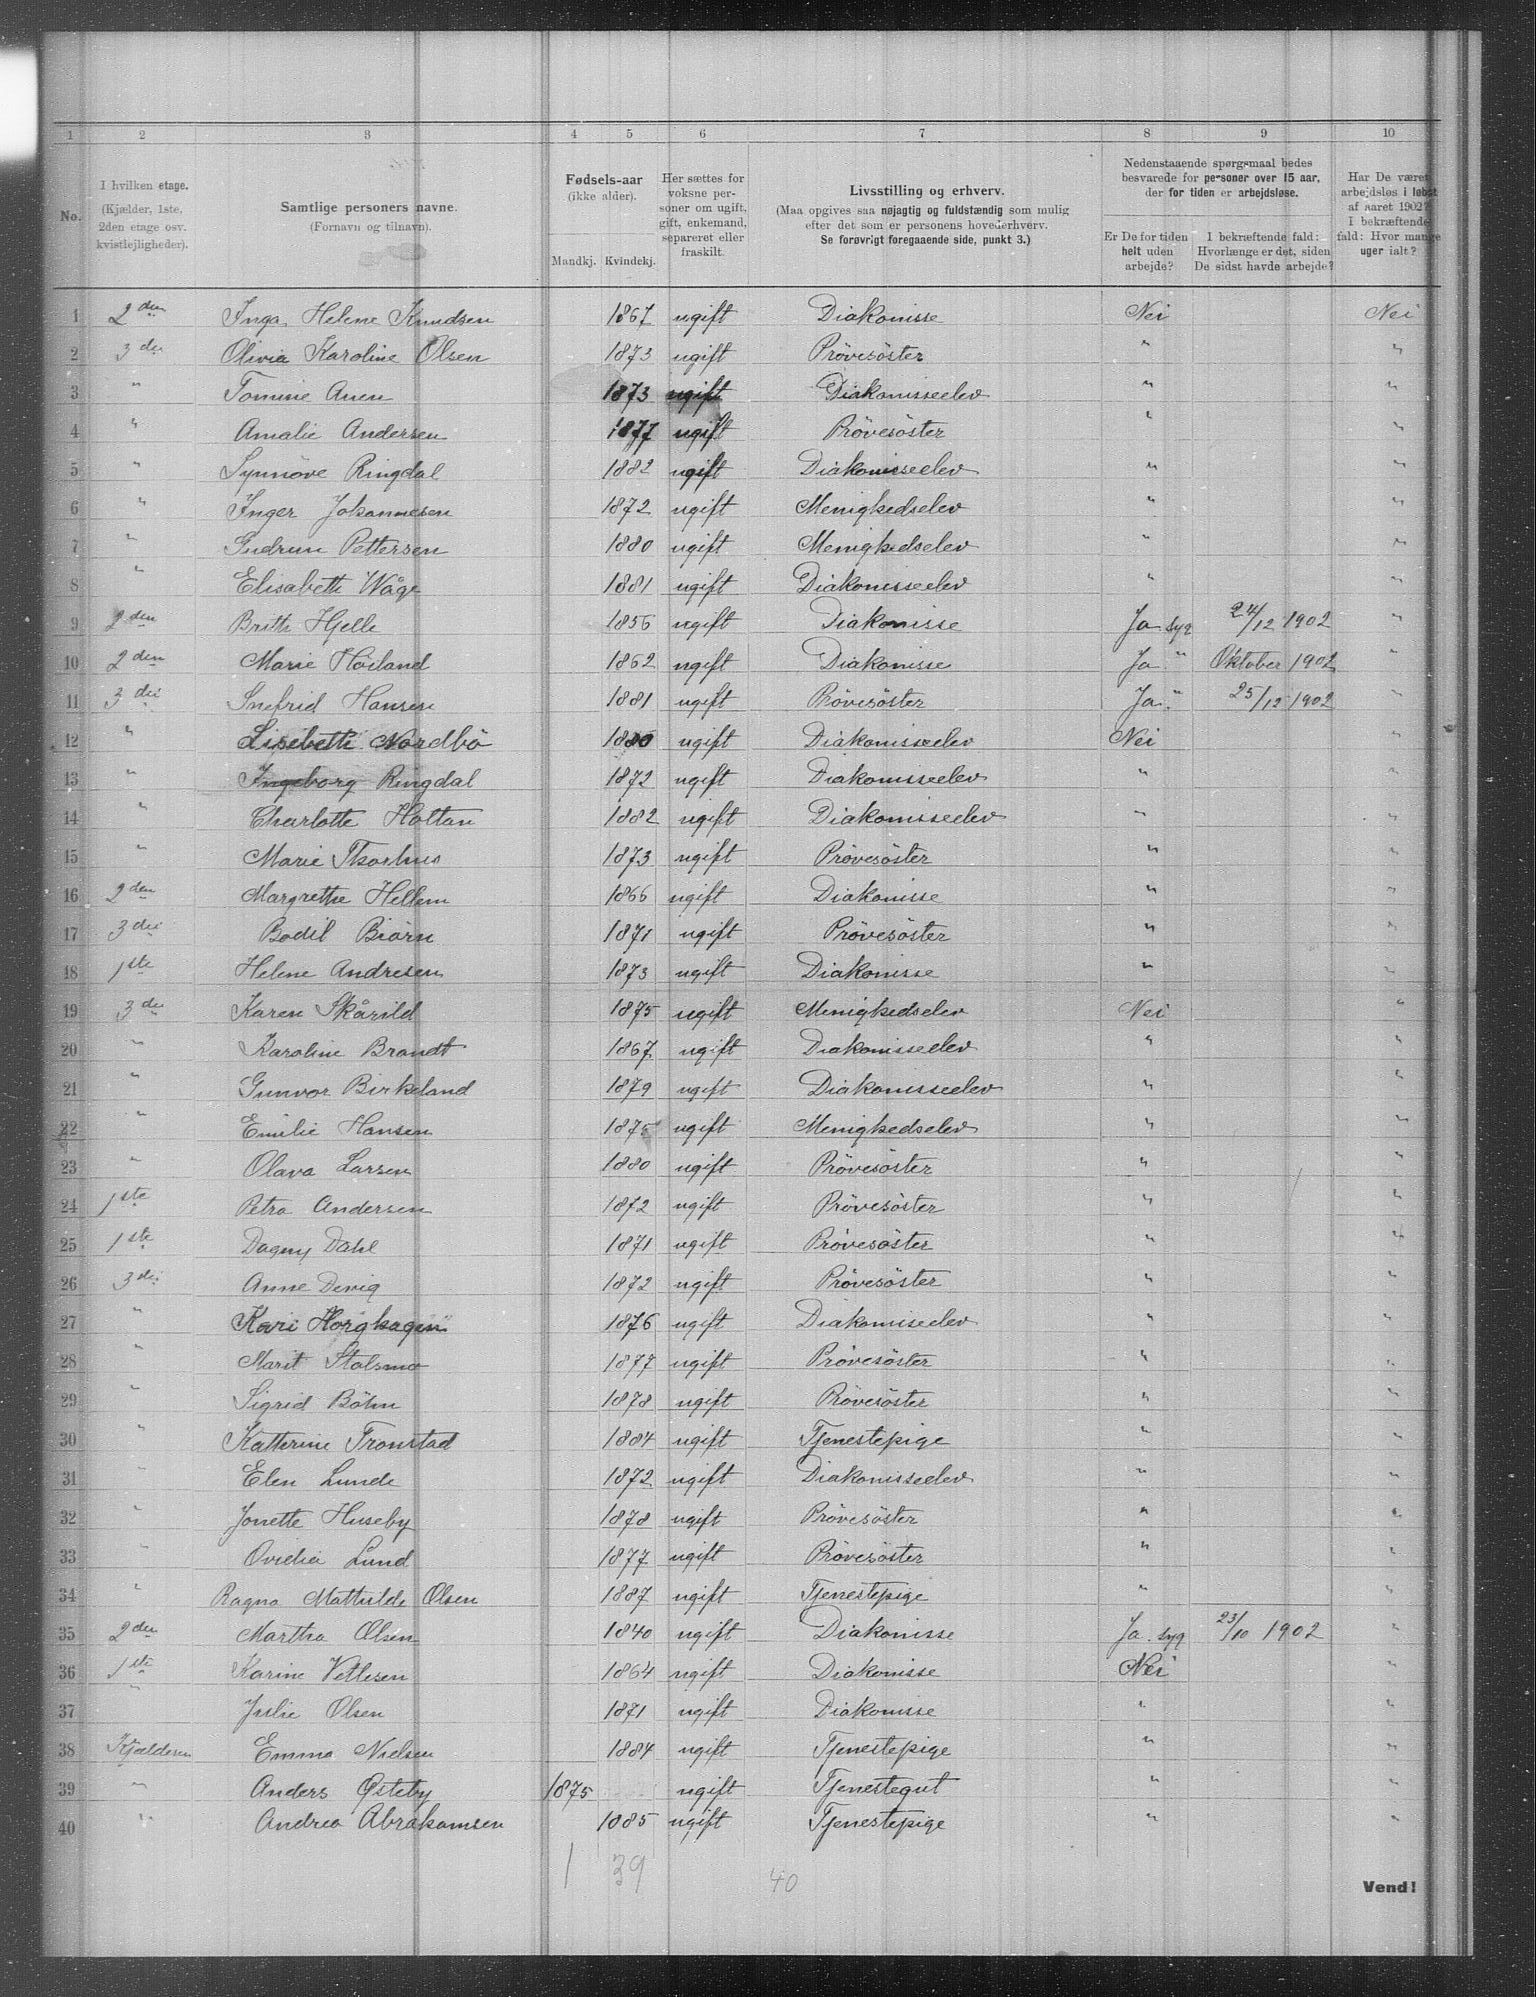 1 2 3 4 5 6 7 8 9 10
No.
I hvilken etage.
(Kjælder, 1ste,
2den etage osv.
kvistlejligheder).
Samtlige personers navne.
(Fornavn og tilnavn).
Fødsels-aar
(ikke alder).
Mandkj. Kvindekj.
Her sættes for
voksne per-
soner om ugift,
gift, enkemand,
separeret eller
fraskilt.
Livsstilling og erhverv.
(Maa opgives saa nøjagtig og fuldstændig som mulig
efter det som er personens hovederhverv.
Se forøvrigt foregaaende side, punkt 3.)
Nedenstaaende spørgsmaal bedes
besvarede for personer over 15 aar,
der for tiden er arbejdsløse.
Er De for tiden
helt uden
arbejde?
I bekræftende fald:
Hvorlænge er det, siden
De sidst havde arbejde?
Har De været
arbejdsløs i løbet
af aaret 1902?
I bekræftende
fald: Hvor mange
uger ialt?
1 2den Inga Helene Knudsen 1867 ugift Diakonisse Nei Nei
2 3die Olivia Karoline Olsen 1873 ugift Prövesöster " "
3 " Tomine Auen 1873 ugift Diakonisseelev " "
4 " Amalie Andersen 1877 ugift Prövesöster " "
5 " Synnöve Ringdal 1882 ugift Diakonisseelev " "
6 " Inger Johannesen 1872 ugift Menighedselev " "
7 " Gudrun Pettersen 1880 ugift Menighedselev " "
8 " Elisabeth Wåge 1881 ugift Diakonisseelev " "
9 2den Brith Hjelle 1856 ugift Diakonisse Ja syg 24/12 1902 "
10 2den Marie Höiland 1862 ugift Diakonisse Ja " Oktober 1902 "
11 3die Snefrid Hansen 1881 ugift Prövesöster Ja " 25/12 1902 "
12 " Lisebeth Nordbö 1880 ugift Diakonisseelev Nei "
13 " Ingeborg Ringdal 1872 ugift Diakonisseelev " "
14 " Charlotte Holtan 1882 ugift Diakonisseelev " "
15 " Marie 1873 ugift Prövesöster " "
16 2den Margrethe Hellem 1866 ugift Diakonisse " "
17 3die Bodil Biörn 1871 ugift Prövesöster " "
18 1ste Helene Andresen 1873 ugift Diakonisse " "
19 3die Karen Skårild 1875 ugift Menighedselev Nei "
20 " Karoline Brandt 1867 ugift Diakonisseelev " "
21 " Gunvor Birkeland 1879 ugift Diakonisseelev " "
22 " Emilie Hansen 1875 ugift Menighedselev " "
23 " Olava Larsen 1880 ugift Prövesöster " "
24 1ste Petra Andersen 1872 ugift Prövesöster " "
25 1ste Dagny Dahl 1871 ugift Prövesöster " "
26 3die Anne Devig 1872 ugift Prövesöster " "
27 " Kari Horghagen 1876 ugift Diakonisseelev " "
28 " Marit Stolsmo 1877 ugift Prövesöster " "
29 " Sigrid Böhn 1878 ugift Prövesöster " "
30 " Katterine Tronstad 1884 ugift Tjenestepige " "
31 " Elen Lunde 1872 ugift Diakonisseelev " "
32 " Jonette Huseby 1878 ugift Prövesöster " "
33 " Ovidia Lund 1877 ugift Prövesöster " "
34 " Ragna Mathilde Olsen 1887 ugift Tjenestepige " "
35 2den Martha Olsen 1840 ugift Diakonisse Ja syg 23/10 1902 "
36 1ste Karine Vetlesen 1864 ugift Diakonisse Nei "
37 " Julie Olsen 1871 ugift Diakonisse " "
38 Kjælderen Emma Nielsen 1884 ugift Tjenestepige " "
39 " Anders Østeby 1875 ugift Tjenestegut " "
40 " Andrea Abrahamsen 1885 ugift Tjenestepige " "
1 39 40
Vend!